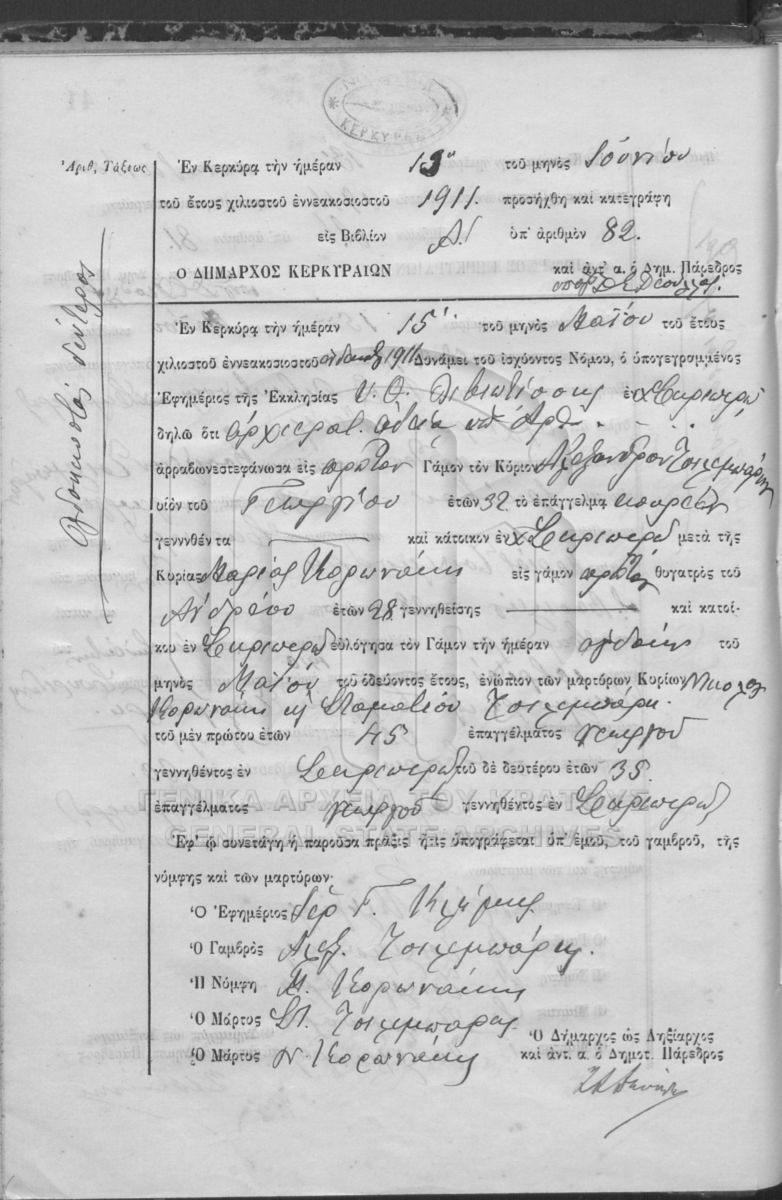 ΚΕΡΚΥΡΑΙΩΝ
Ἀριθ. Τάξεως
Ἐν Κερκύρᾳ τὴν ἡμέραν 13ῃ τοῦ μηνὸς Ἰουνίου
τοῦ ἔτους χιλιοστοῦ ἐννεακοσιοστοῦ 1911. προσήχθη καὶ κατεγράφη
εἰς Βιβλίον Α' ὑπ' ἀριθμὸν 82.
Ο ΔΗΜΑΡΧΟΣ ΚΕΡΚΥΡΑΙΩΝ
καὶ ἀντ' α. ὁ Δημ. Πάρεδρος
ὀγδοηκοστὸς δεύτερος
Ἐν Κερκύρᾳ τὴν ἡμέραν 15 τοῦ μηνὸς Μαΐου τοῦ ἔτους
χιλιοστοῦ ἐννεακοσιοστοῦ 1911 Δυνάμει τοῦ ἰσχύοντος Νόμου, ὁ ὑπογεγραμμένος
Ἐφημέριος τῆς Ἐκκλησίας Υ. Θ. ἐν Σκριπερῷ
δηλῶ ὅτι ἀρχιερατ. ἀδείᾳ ὑπ' Ἀρθ.
ἀρραβωνεστεφάνωσα εἰς πρῶτον Γάμον τὸν Κύριον Ἀλέξανδρον Τσιλιμπάρην
υἱὸν τοῦ Γεωργίου ἐτῶν 32 τὸ ἐπάγγελμα κουρεὺς
γεννηθέν τα καὶ κάτοικον ἐν Σκριπερῷ μετὰ τῆς
Κυρίας Μαρίας Κορωνάκη εἰς γάμον πρῶτον θυγατρὸς τοῦ
Ἀνδρέου ἐτῶν 28 γεννηθείσης καὶ κατοί-
κου ἐν Σκριπερῷ εὐλόγησα τὸν Γάμον τὴν ἡμέραν ὀγδόην τοῦ
μηνὸς Μαΐου τοῦ ὁδεύοντος ἔτους, ἐνώπιον τῶν μαρτύρων Κυρίων Νικολάου
Κορωνάκη κ Σταματίου Τσιλιμπάρη.
τοῦ μὲν πρώτου ἐτῶν 45 ἐπαγγέλματος γεωργοῦ
γεννηθέντος ἐν Σκριπερῷ τοῦ δὲ δευτέρου ἐτῶν 35
ἐπαγγέλματος γεωργοῦ γεννηθέντος ἐν Σκριπερῷ
ΓΕΝΙΚΑ ΑΡΧΕΙΑ ΤΟΥ ΚΡΑΤΟΥΣ
GENERAL STATE ARCHIVES
Ἐφ' ᾧ συνετάγη ἡ παροῦσα πρᾶξις ἥτις ὑπογράφεται ὑπ' ἐμοῦ, τοῦ γαμβροῦ, τῆς
νύμφης καὶ τῶν μαρτύρων·
Ὁ Ἐφημέριος Ἱερ Γ.
Ὁ Γαμβρὸς Αλεξ. Τσιλιμπάρης.
Ἡ Νύμφη Μ. Κορωνάκη
Ὁ Μάρτυς Στ. Τσιλιμπαρης
Ὁ Μάρτυς Ν. Κορωνάκης
Ὁ Δήμαρχος ὡς Ληξίαρχος
καὶ ἀντ. α. ὁ Δημοτ. Πάρεδρος